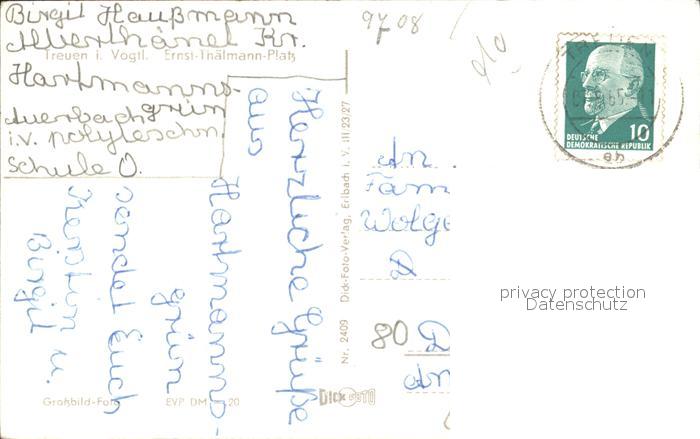 Birgit Haußmann
Kr.
Treuen i. Vogtl. Ernst-Thälmann-Platz
Hartmanns-
grün
Auerbach
i.V. polytechn.
Schule O.
97 08
Herzliche Grüße
aus
Hartmanns-
grün
sendet Euch
Kerstin u.
Birgit
Nr. 2409 Dick-Foto-Verlag, Erlbach i. V. III/23/27
An
Fam
Wolge
D
80 D
Großbild-Foto EVP DM 20
DICK FOTO
DEUTSCHE
DEMOKRATISCHE REPUBLIK
10
privacy protection
Datenschutz